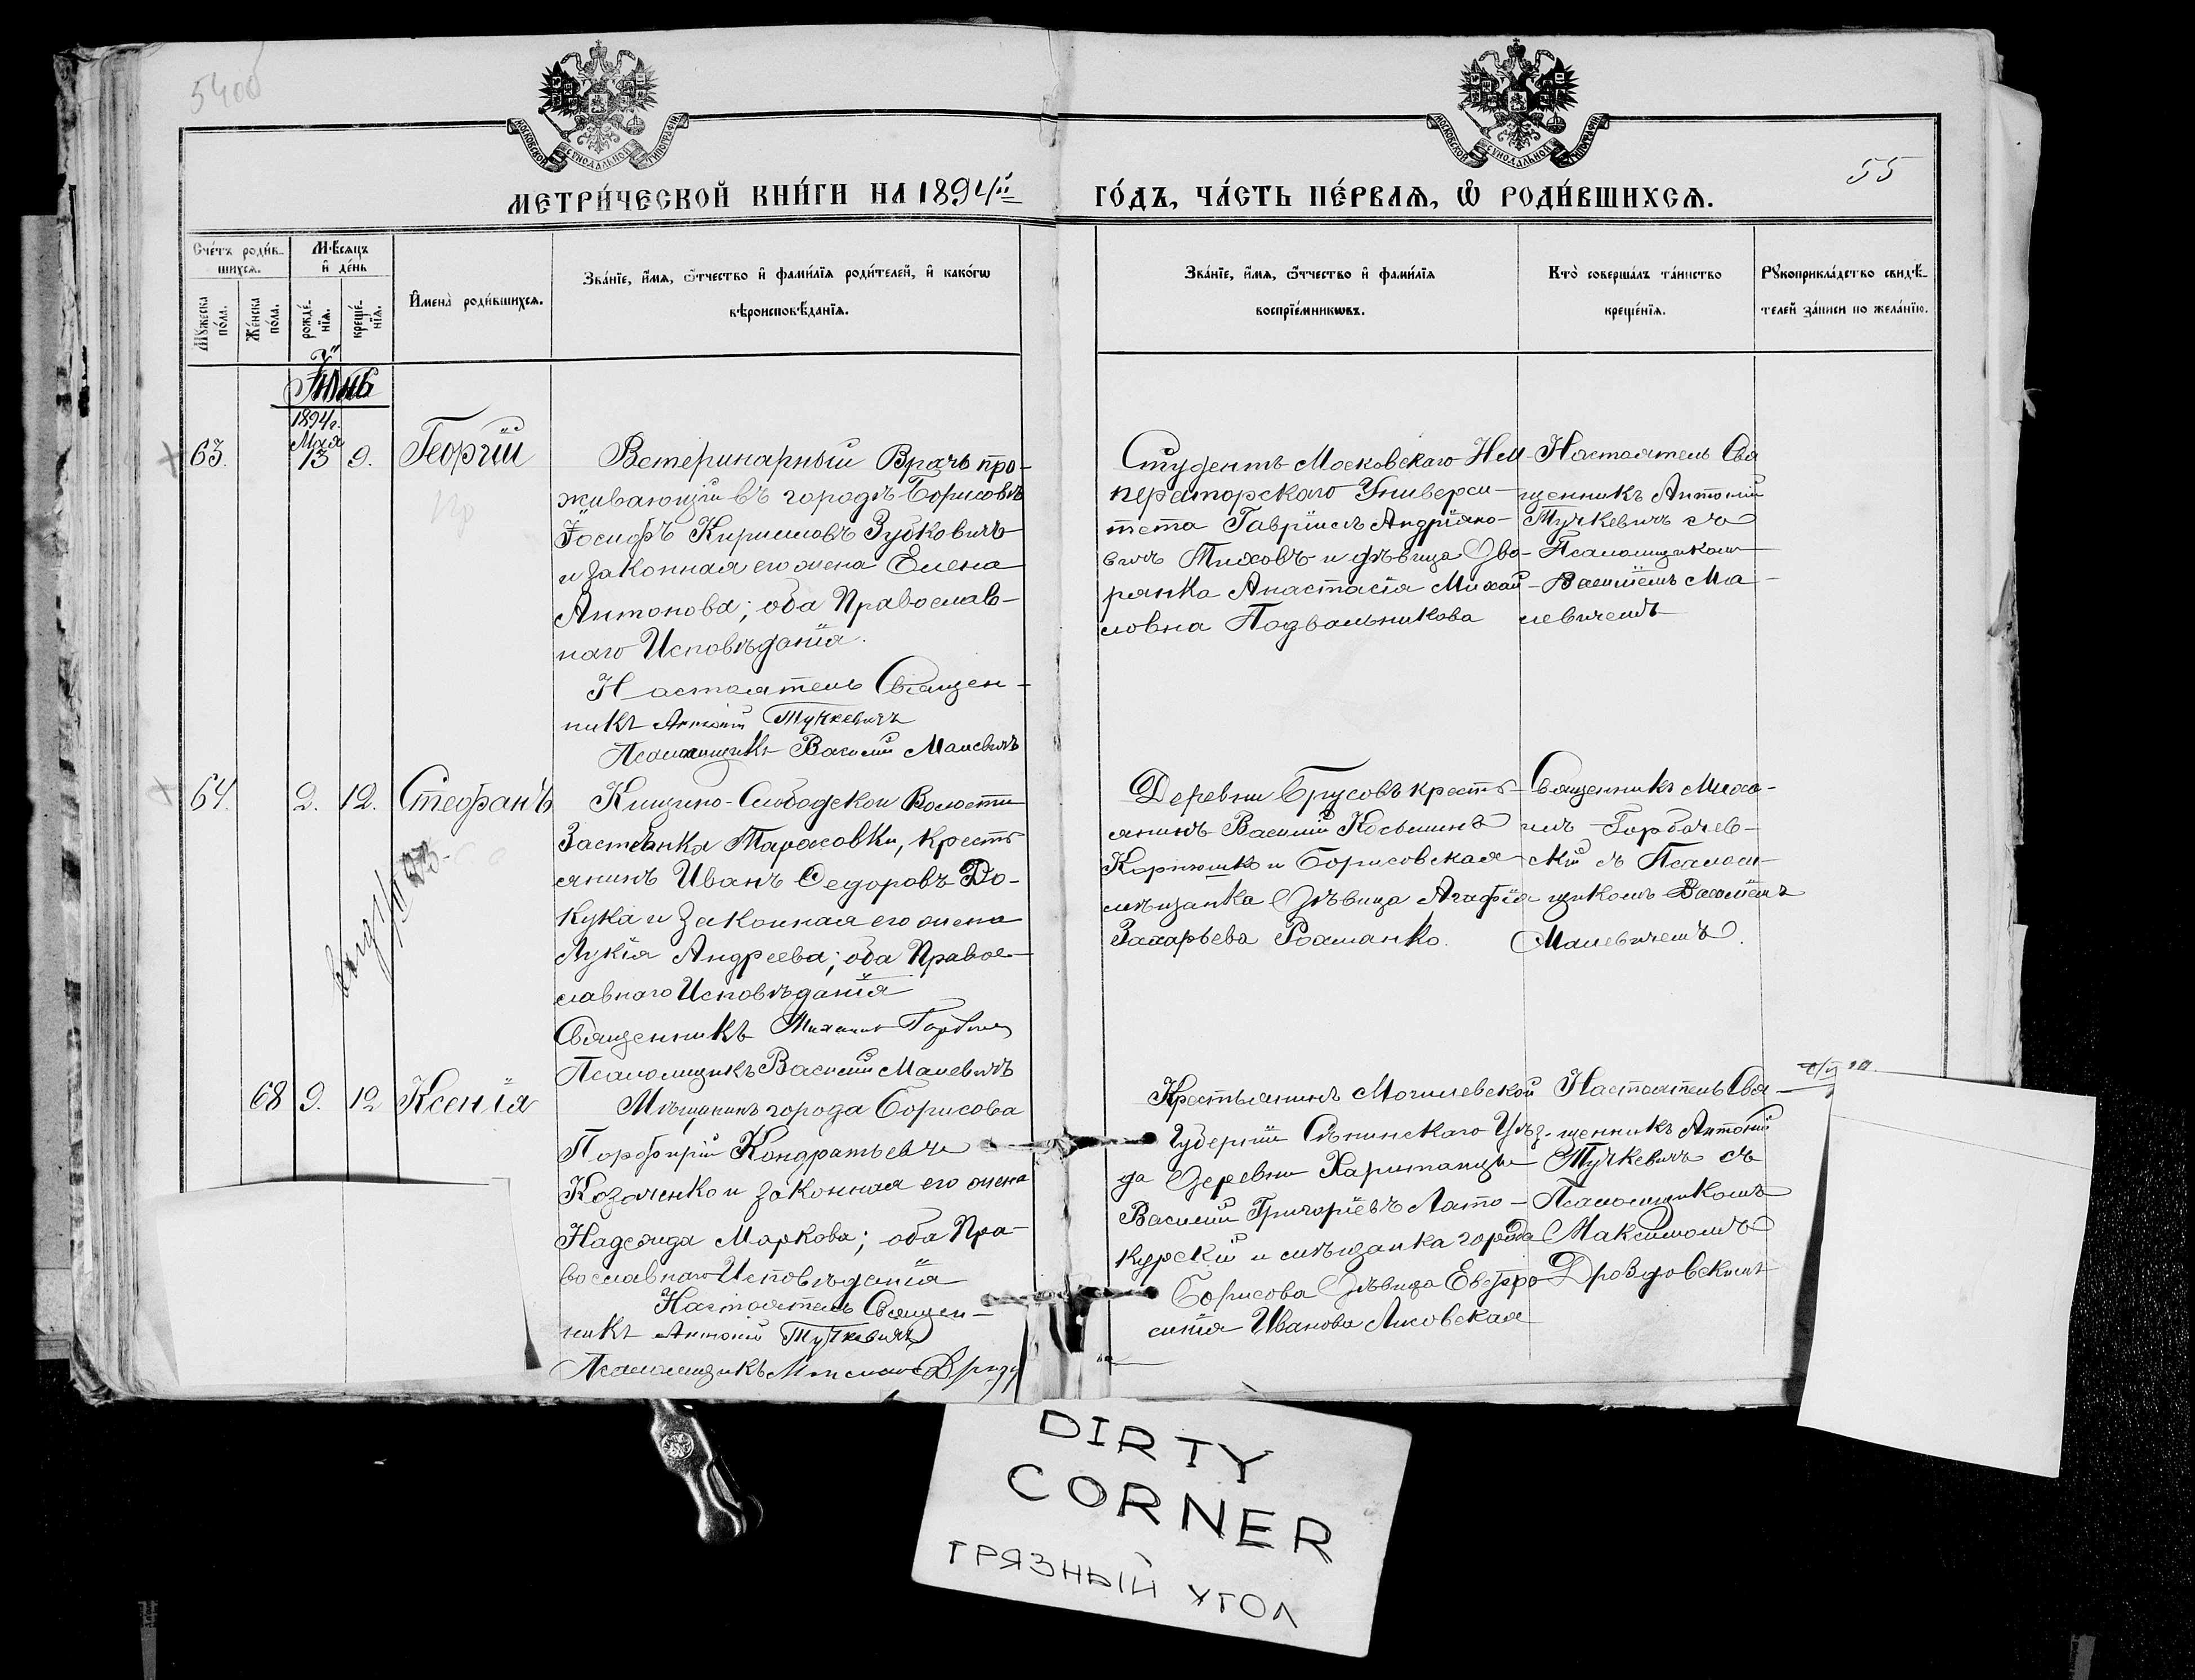 54об
55
МОСКОВСКОЙ СѴНОДАЛЬНОЙ ТИПОГРАФІИ
МОСКОВСКОЙ СѴНОДАЛЬНОЙ ТИПОГРАФІИ
МЕТРИ́ЧЕСКОЙ КНИ́ГИ НА 1894й
ГО́ДЪ, ЧА́СТЬ ПЕ́РВАѦ, Ѡ҆ РОДИ́ВШИХСѦ.
Сче́тъ роди́в-
шихсѧ.
Мꙋ́жеска по́ла.
Же́нска по́ла.
Мѣ́сѧцъ
и҆ де́нь
рожде́-
нїѧ.
креще́-
нїѧ.
И҆мена̀ роди́вшихсѧ.
Зва́нїе, и҆́мѧ, ѻ҆́тчество и҆ фами́лїѧ роди́телей, и҆ како́гѡ
вѣроисповѣ́данїѧ.
Зва́нїе, и҆́мѧ, ѻ҆́тчество и҆ фами́лїѧ
воспрїе́мникѡвъ.
Кто̀ соверша́лъ та́инство
креще́нїѧ.
Рꙋкоприкла́дство свидѣ́-
телей за́писи по жела́нїю.
Іюнь
1894г.
Мая
63.
13
9.
Георгій
Ветеринарный Врачъ про-
живающій въ городѣ Борисовѣ
Іосифъ Кирилловъ Зубковичъ
и законная его жена Елена
Антонова; оба Православ-
наго Исповѣданія.
Настоятель Священ-
никъ Антоній Тучкевичъ
Псаломщикъ Василій Малевичъ
Студентъ Московскаго Им-
ператорскаго Универси-
тета Гавріилъ Андріано-
вичъ Тиховъ и дѣвица Дво-
рянка Анастасія Михай-
ловна Подвальникова
Настоятель Свя
щенникъ Антоній
Тучкевичъ съ
Псаломщикомъ
Василіемъ Ма-
левичемъ
64.
2.
12.
Стефанъ
Клищино-Слободской Волости
Застѣнка Тарасовки, кресть
янинъ Иванъ Федоровъ До-
кука и законная его жена
Лукія Андреева; оба Правос-
лавнаго Исповѣданія
Священникъ Михаилъ
Псаломщикъ Василій Малевичъ
Деревни Брусовъ кресть-
янинъ Василій Косьминъ
Корнюшко и Борисовская
мѣщанка Дѣвица Агафія
Захарьева Романко.
Священникъ Миха-
илъ Горбачев-
скій съ Псалом-
щикомъ Василіемъ
Малевичемъ.
68
9.
12
Ксенія
Мѣщанинъ города Борисова
Порфирій Кондратьевъ
Козаченко и законная его жена
Надежда Маркова; оба Пра-
вославнаго Исповѣданія
Настоятель Священ-
никъ Антоній Тучкевичъ
Псаломщикъ
Крестьянинъ Могилевской
Губерніи Сѣнинскаго Уѣз-
да Деревни Харитонцы
Василій Григоріевъ Лато-
курскій и мѣщанка города
Борисова Дѣвица Евфро
синія Иванова Лисовская
Настоятель Свя-
щенникъ Антоній
Тучкевичъ съ
Псаломщикомъ
Максимомъ
Дроздовскимъ
DIRTY
CORNER
ГРЯЗНЫЙ УГОЛ